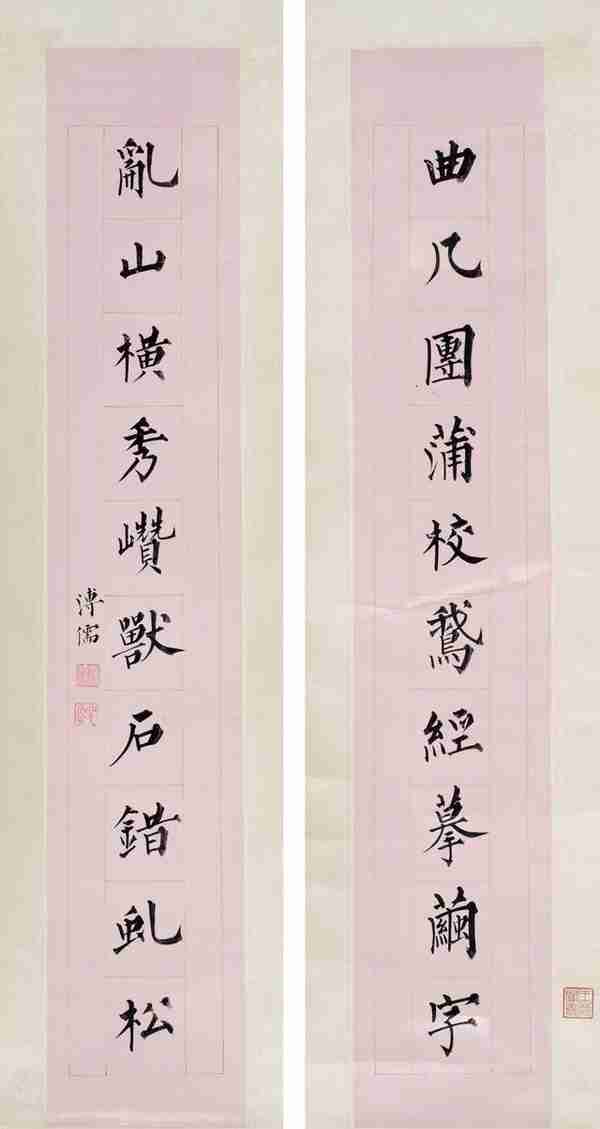 曲几團蒲校鵝經摹繭字
亂山橫秀巑獸石錯虬松
溥儒